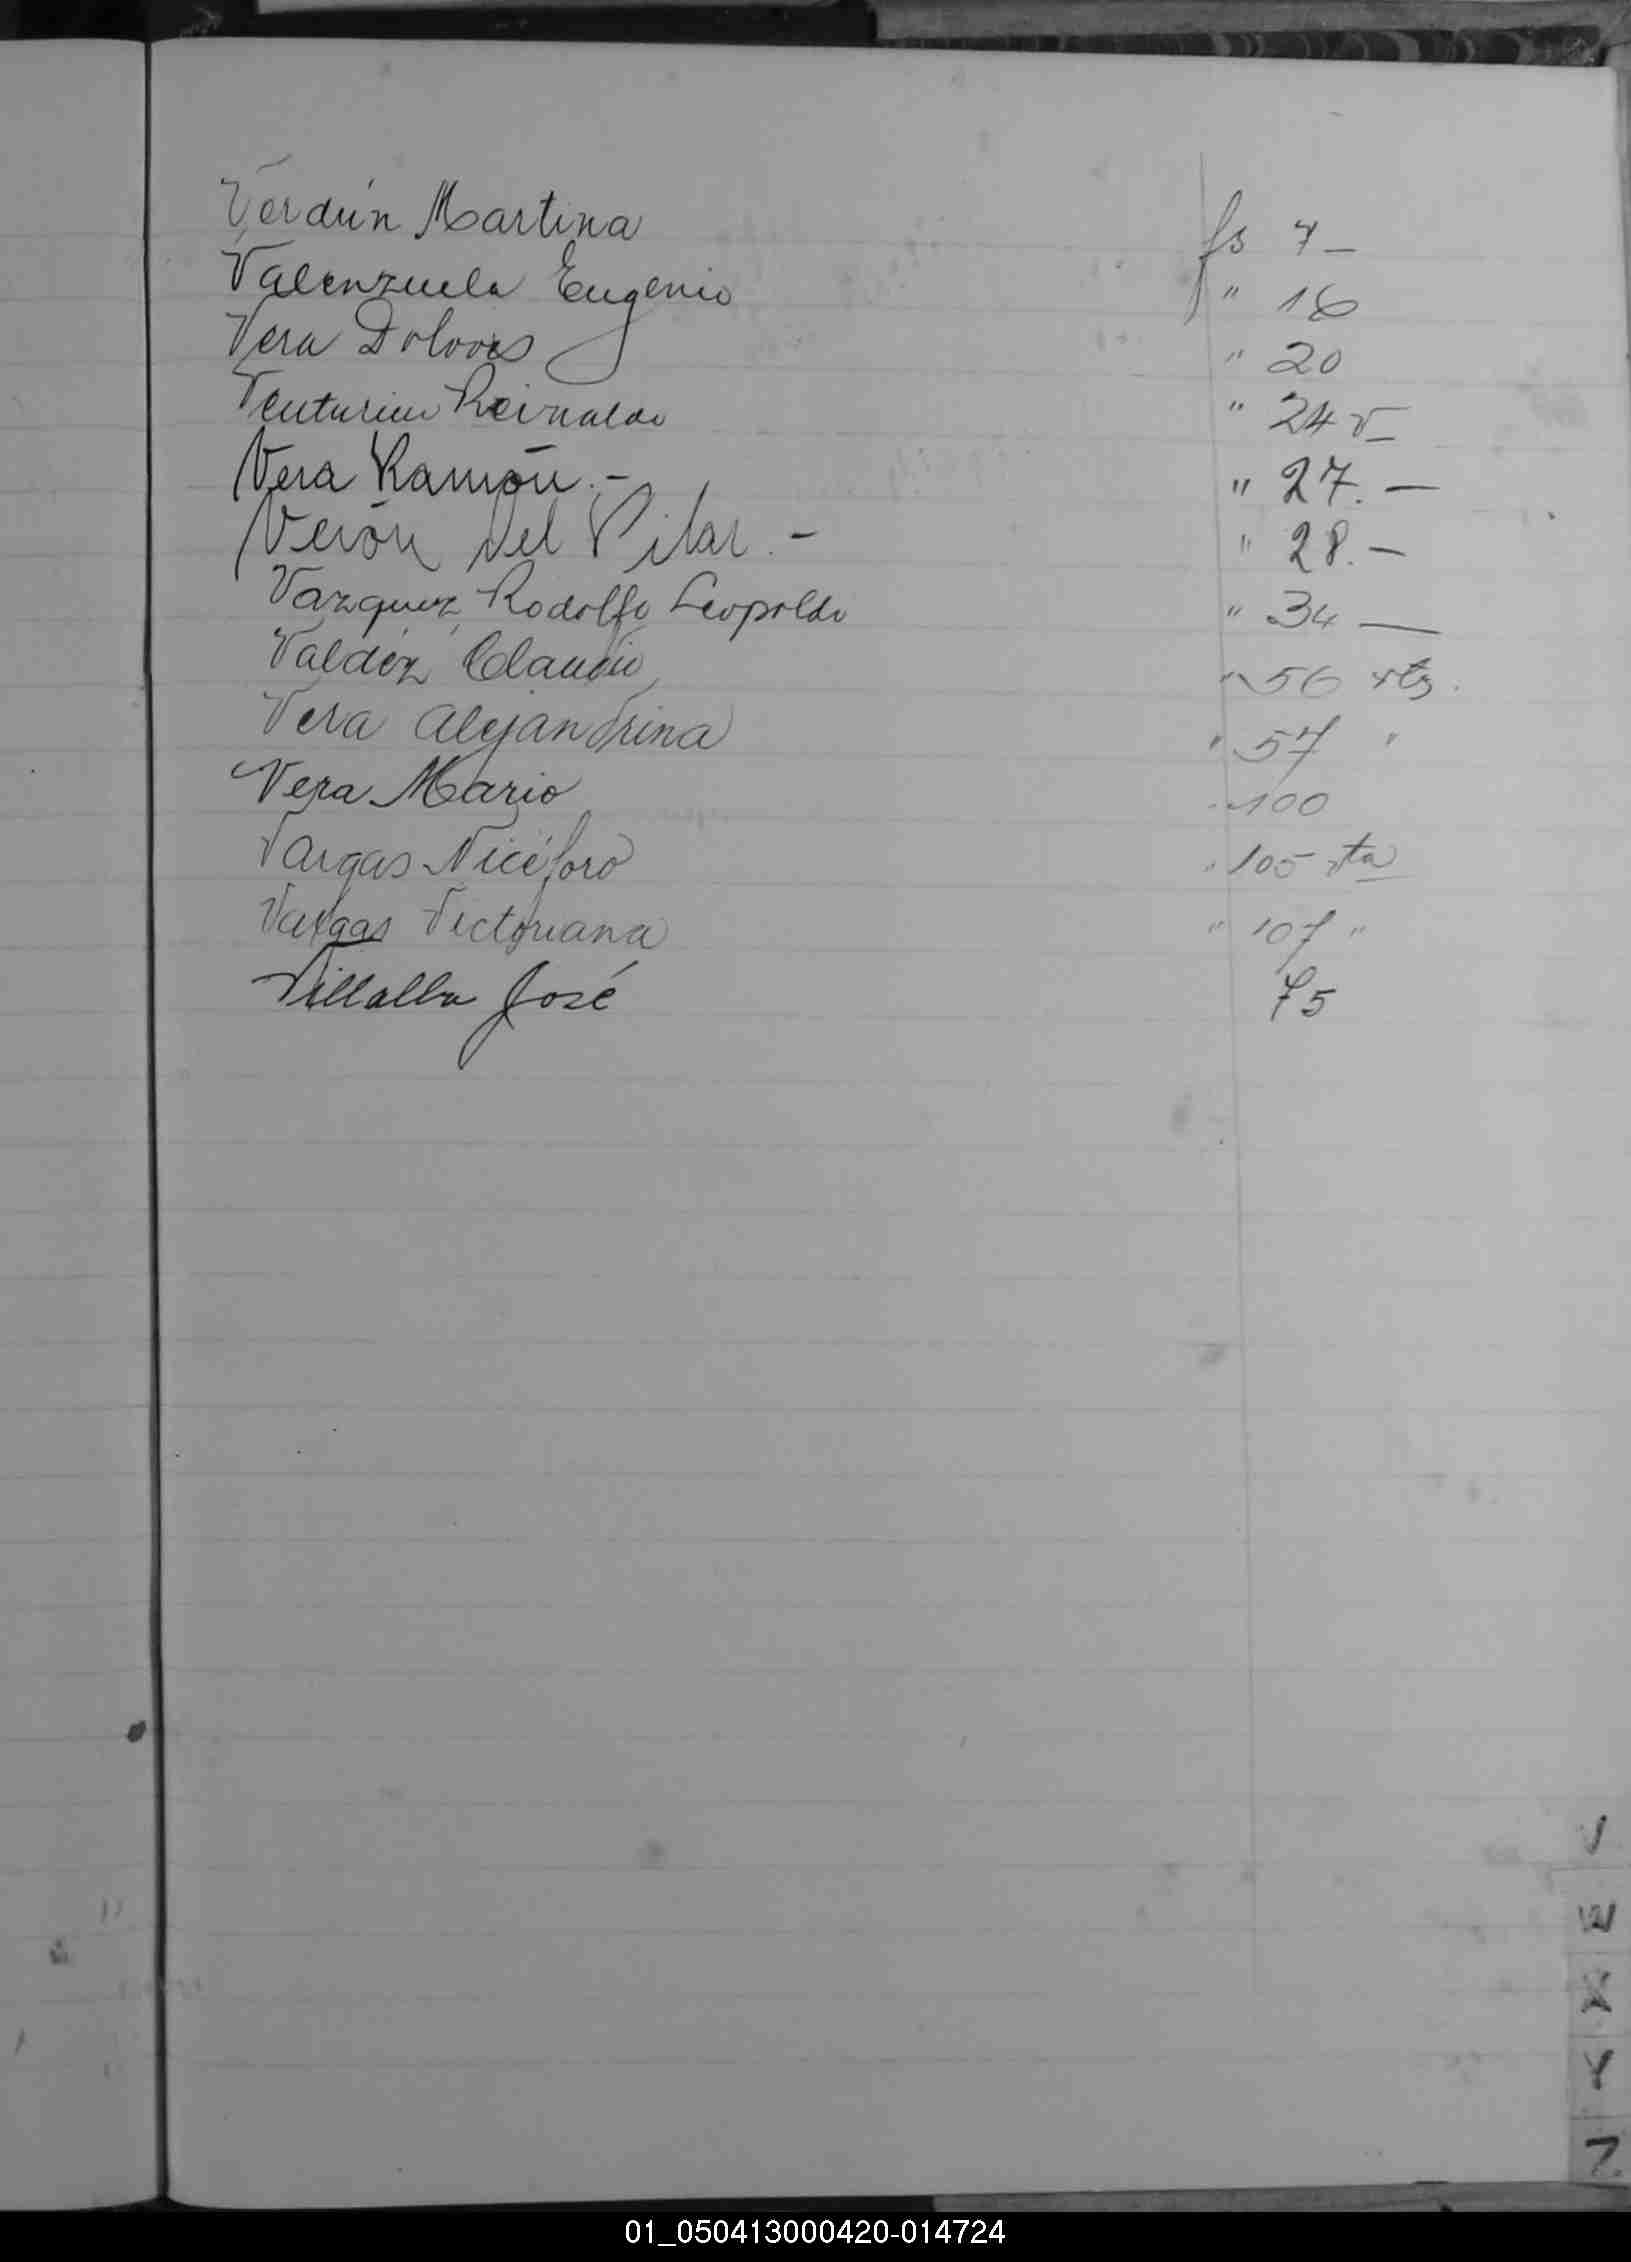 Verdún Martina fs 7 —
Valenzuela Eugenio " 16
Vera Dolores " 20
Venturini Reinaldo " 24 v—
Vera Ramón. — " 27. —
Verón Del Pilar. — " 28. —
Vazquez Rodolfo Leopoldo " 34 —
Valdéz Claudio " 56 vta.
Vera Alejandrina " 57 "
Vera Mario " 100
Vargas Nicéforo " 105 vta
Vargas Victoriana " 107 "
Villalba José 75
V
W
X
Y
Z
01_050413000420-014724